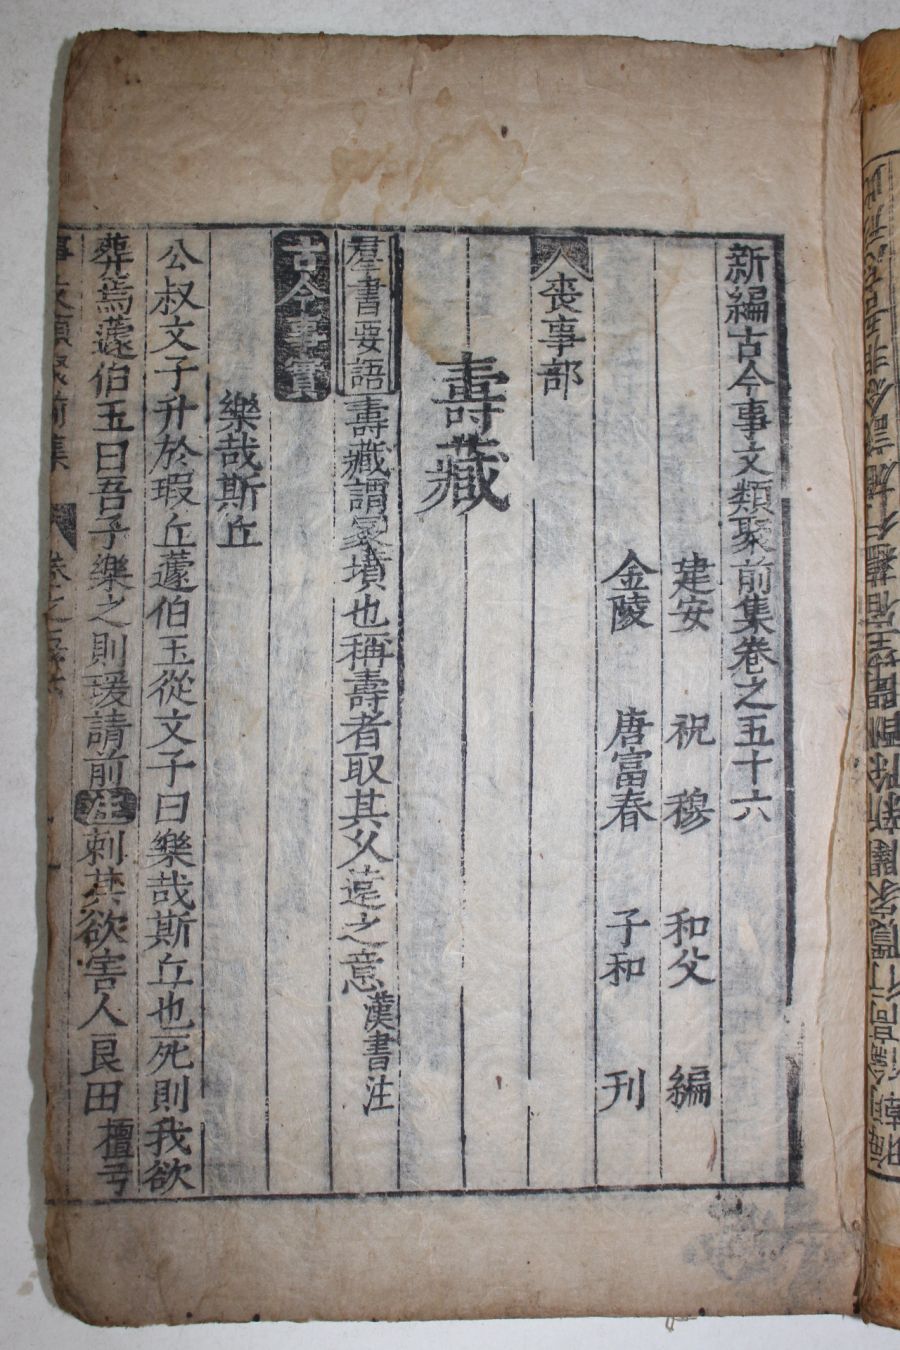 新編古今事文類聚前集卷之五十六
建安 祝穆 和父 編
金陵 唐富春 子和 刊
喪事部
壽藏
羣書要語 壽藏謂冢壙也稱壽者取其久遠之意 漢書注
古今事實
樂哉斯丘
公叔文子升於瑕丘蘧伯玉從文子曰樂哉斯丘也死則我欲
葬焉蘧伯玉曰吾子樂之則瑗請前 注 刺其欲害人良田 檀弓